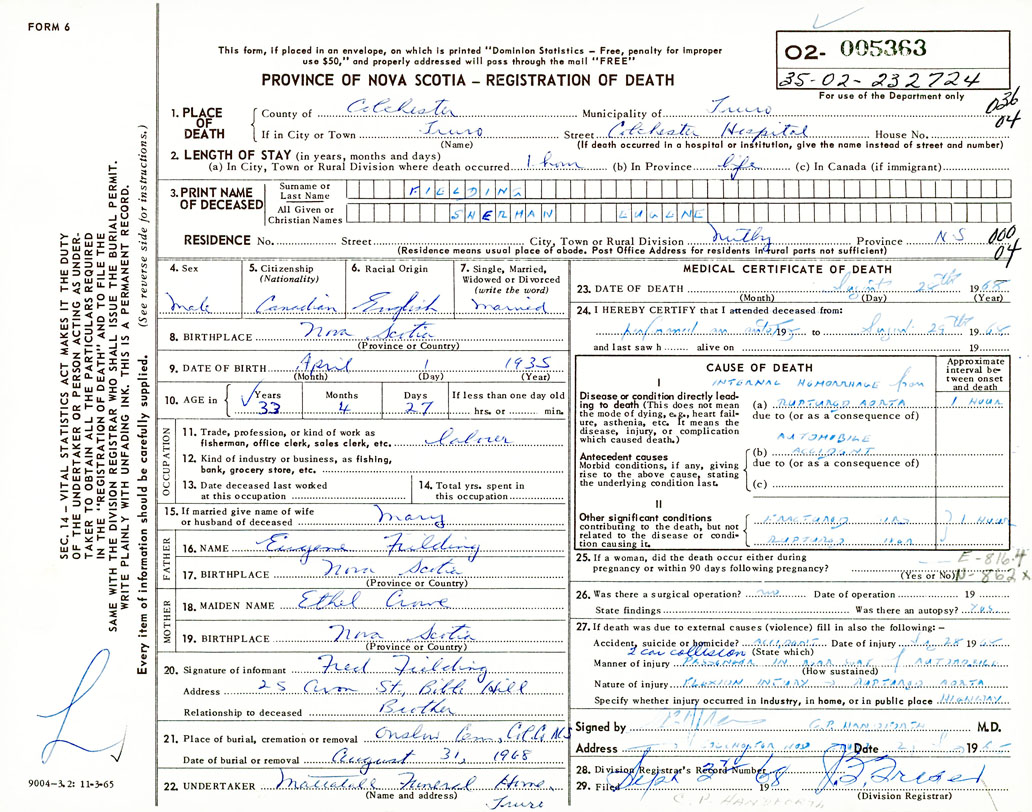 FORM 6
This form, if placed in an envelope, on which is printed "Dominion Statistics – Free, penalty for improper
use $50," and properly addressed will pass through the mail "FREE"
PROVINCE OF NOVA SCOTIA – REGISTRATION OF DEATH
02- 005363
35-02-232724
For use of the Department only
036
04
1. PLACE OF DEATH
County of Colchester Municipality of Truro
If in City or Town Truro Street Colchester Hospital House No.
(Name) (If death occurred in a hospital or institution, give the name instead of street and number)
2. LENGTH OF STAY (in years, months and days)
(a) In City, Town or Rural Division where death occurred 1 hour (b) In Province life (c) In Canada (if immigrant)
3. PRINT NAME OF DECEASED
Surname or Last Name FIELDING
All Given or Christian Names SHERMAN EUGENE
RESIDENCE No. Street City, Town or Rural Division Nutby Province N S
000
04
(Residence means usual place of abode. Post Office Address for residents in rural parts not sufficient)
4. Sex
Male
5. Citizenship
(Nationality)
Canadian
6. Racial Origin
English
7. Single, Married,
Widowed or Divorced
(write the word)
Married
8. BIRTHPLACE Nova Scotia
(Province or Country)
9. DATE OF BIRTH April 1 1935
(Month) (Day) (Year)
10. AGE in
Years Months Days If less than one day old
33 4 27 hrs. or min.
OCCUPATION
11. Trade, profession, or kind of work as
fisherman, office clerk, sales clerk, etc. laborer
12. Kind of industry or business, as fishing,
bank, grocery store, etc.
13. Date deceased last worked
at this occupation
14. Total yrs. spent in
this occupation
15. If married give name of wife
or husband of deceased Mary
FATHER
16. NAME Eugene Fielding
17. BIRTHPLACE Nova Scotia
(Province or Country)
MOTHER
18. MAIDEN NAME Ethel Crowe
19. BIRTHPLACE Nova Scotia
(Province or Country)
20. Signature of informant Fred Fielding
Address 25 Avon St., Bible Hill
Relationship to deceased Brother
21. Place of burial, cremation or removal Onslow Cem, Col. Co. N S
Date of burial or removal August 31, 1968
22. UNDERTAKER Mattatall Funeral Home,
(Name and address) Truro
MEDICAL CERTIFICATE OF DEATH
23. DATE OF DEATH 1968
(Month) (Day) (Year)
24. I HEREBY CERTIFY that I attended deceased from:
performed an autopsy 19 to 1968
and last saw h alive on 19
CAUSE OF DEATH
Approximate
interval be-
tween onset
and death
I
INTERNAL HEMORRHAGE from
Disease or condition directly lead-
ing to death (This does not mean
the mode of dying, e.g., heart fail-
ure, asthenia, etc. It means the
disease, injury, or complication
which caused death.)
(a) RUPTURED AORTA 1 HOUR
due to (or as a consequence of)
Antecedent causes
Morbid conditions, if any, giving
rise to the above cause, stating
the underlying condition last.
AUTOMOBILE
(b) ACCIDENT
due to (or as a consequence of)
(c)
II
Other significant conditions
contributing to the death, but not
related to the disease or condi-
tion causing it.
FRACTURED
RUPTURED
1 HOUR
25. If a woman, did the death occur either during
pregnancy or within 90 days following pregnancy?
(Yes or No)
E-816.4
N-862 x
26. Was there a surgical operation? Date of operation 19
State findings Was there an autopsy? YES
27. If death was due to external causes (violence) fill in also the following:–
Accident, suicide or homicide? ACCIDENT Date of injury 28 1968
2 car collision (State which)
Manner of injury PASSENGER IN REAR SEAT OF AUTOMOBILE
(How sustained)
Nature of injury FLEXION INJURY RUPTURED AORTA
Specify whether injury occurred in Industry, in home, or in public place HIGHWAY
Signed by M.D.
Address Date 19
28. Division Registrar's Record Number
29. Filed Sept 2nd 1968
(Division Registrar)
SEC. 14 – VITAL STATISTICS ACT MAKES IT THE DUTY
OF THE UNDERTAKER OR PERSON ACTING AS UNDER-
TAKER TO OBTAIN ALL THE PARTICULARS REQUIRED
IN THE "REGISTRATION OF DEATH" AND TO FILE THE
SAME WITH THE DIVISION REGISTRAR WHO SHALL ISSUE THE BURIAL PERMIT.
WRITE PLAINLY WITH UNFADING INK. THIS IS A PERMANENT RECORD.
Every item of information should be carefully supplied. (See reverse side for instructions.)
9004-3.2: 11-3-65